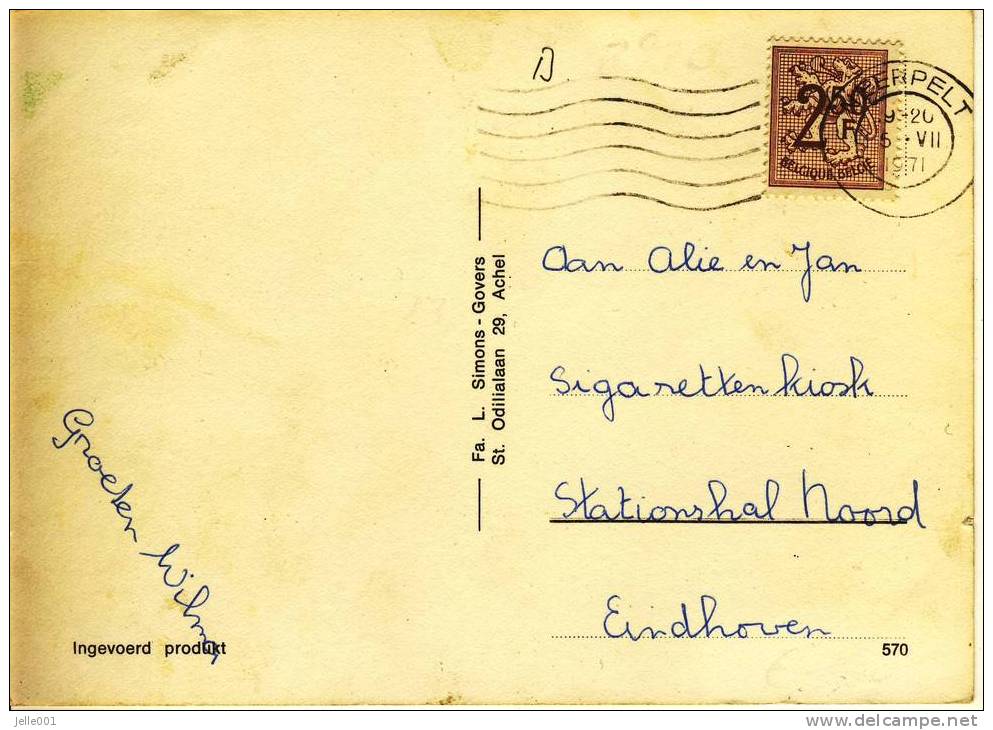 2 50
F
BELGIQUE-BELGIË
ERPELT
9-20
6 - VII
1971
Fa. L. Simons - Govers
St. Odilialaan 29, Achel
Aan Alie en Jan
Sigarettenkiosk
Stationshal Noord
Eindhoven
Groeten Wilma
Ingevoerd produkt
570
jelle001
www.delcampe.net